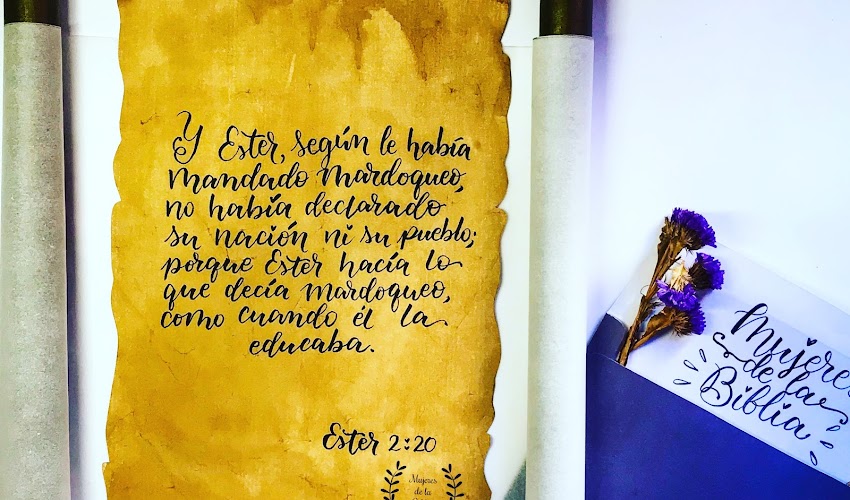 Y Ester, según le había
mandado Mardoqueo,
no había declarado
su nación ni su pueblo;
porque Ester hacía lo
que decía Mardoqueo,
como cuando él la
educaba.
Ester 2:20
Mujeres
de la
Mujeres
de la
Biblia